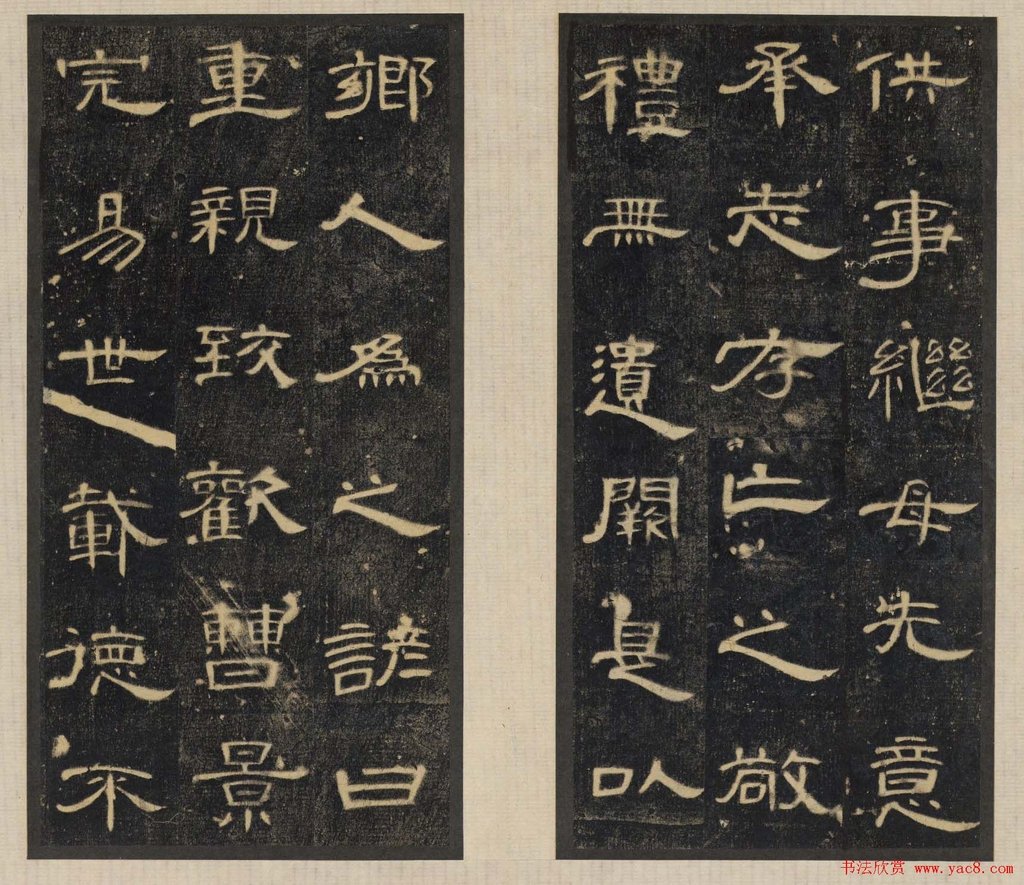 供事繼母先意
承志存亡之敬
禮無遺闕是以
鄉人為之諺曰
重親致歡曹景
完易世載德不
书法欣赏 www.yac8.com